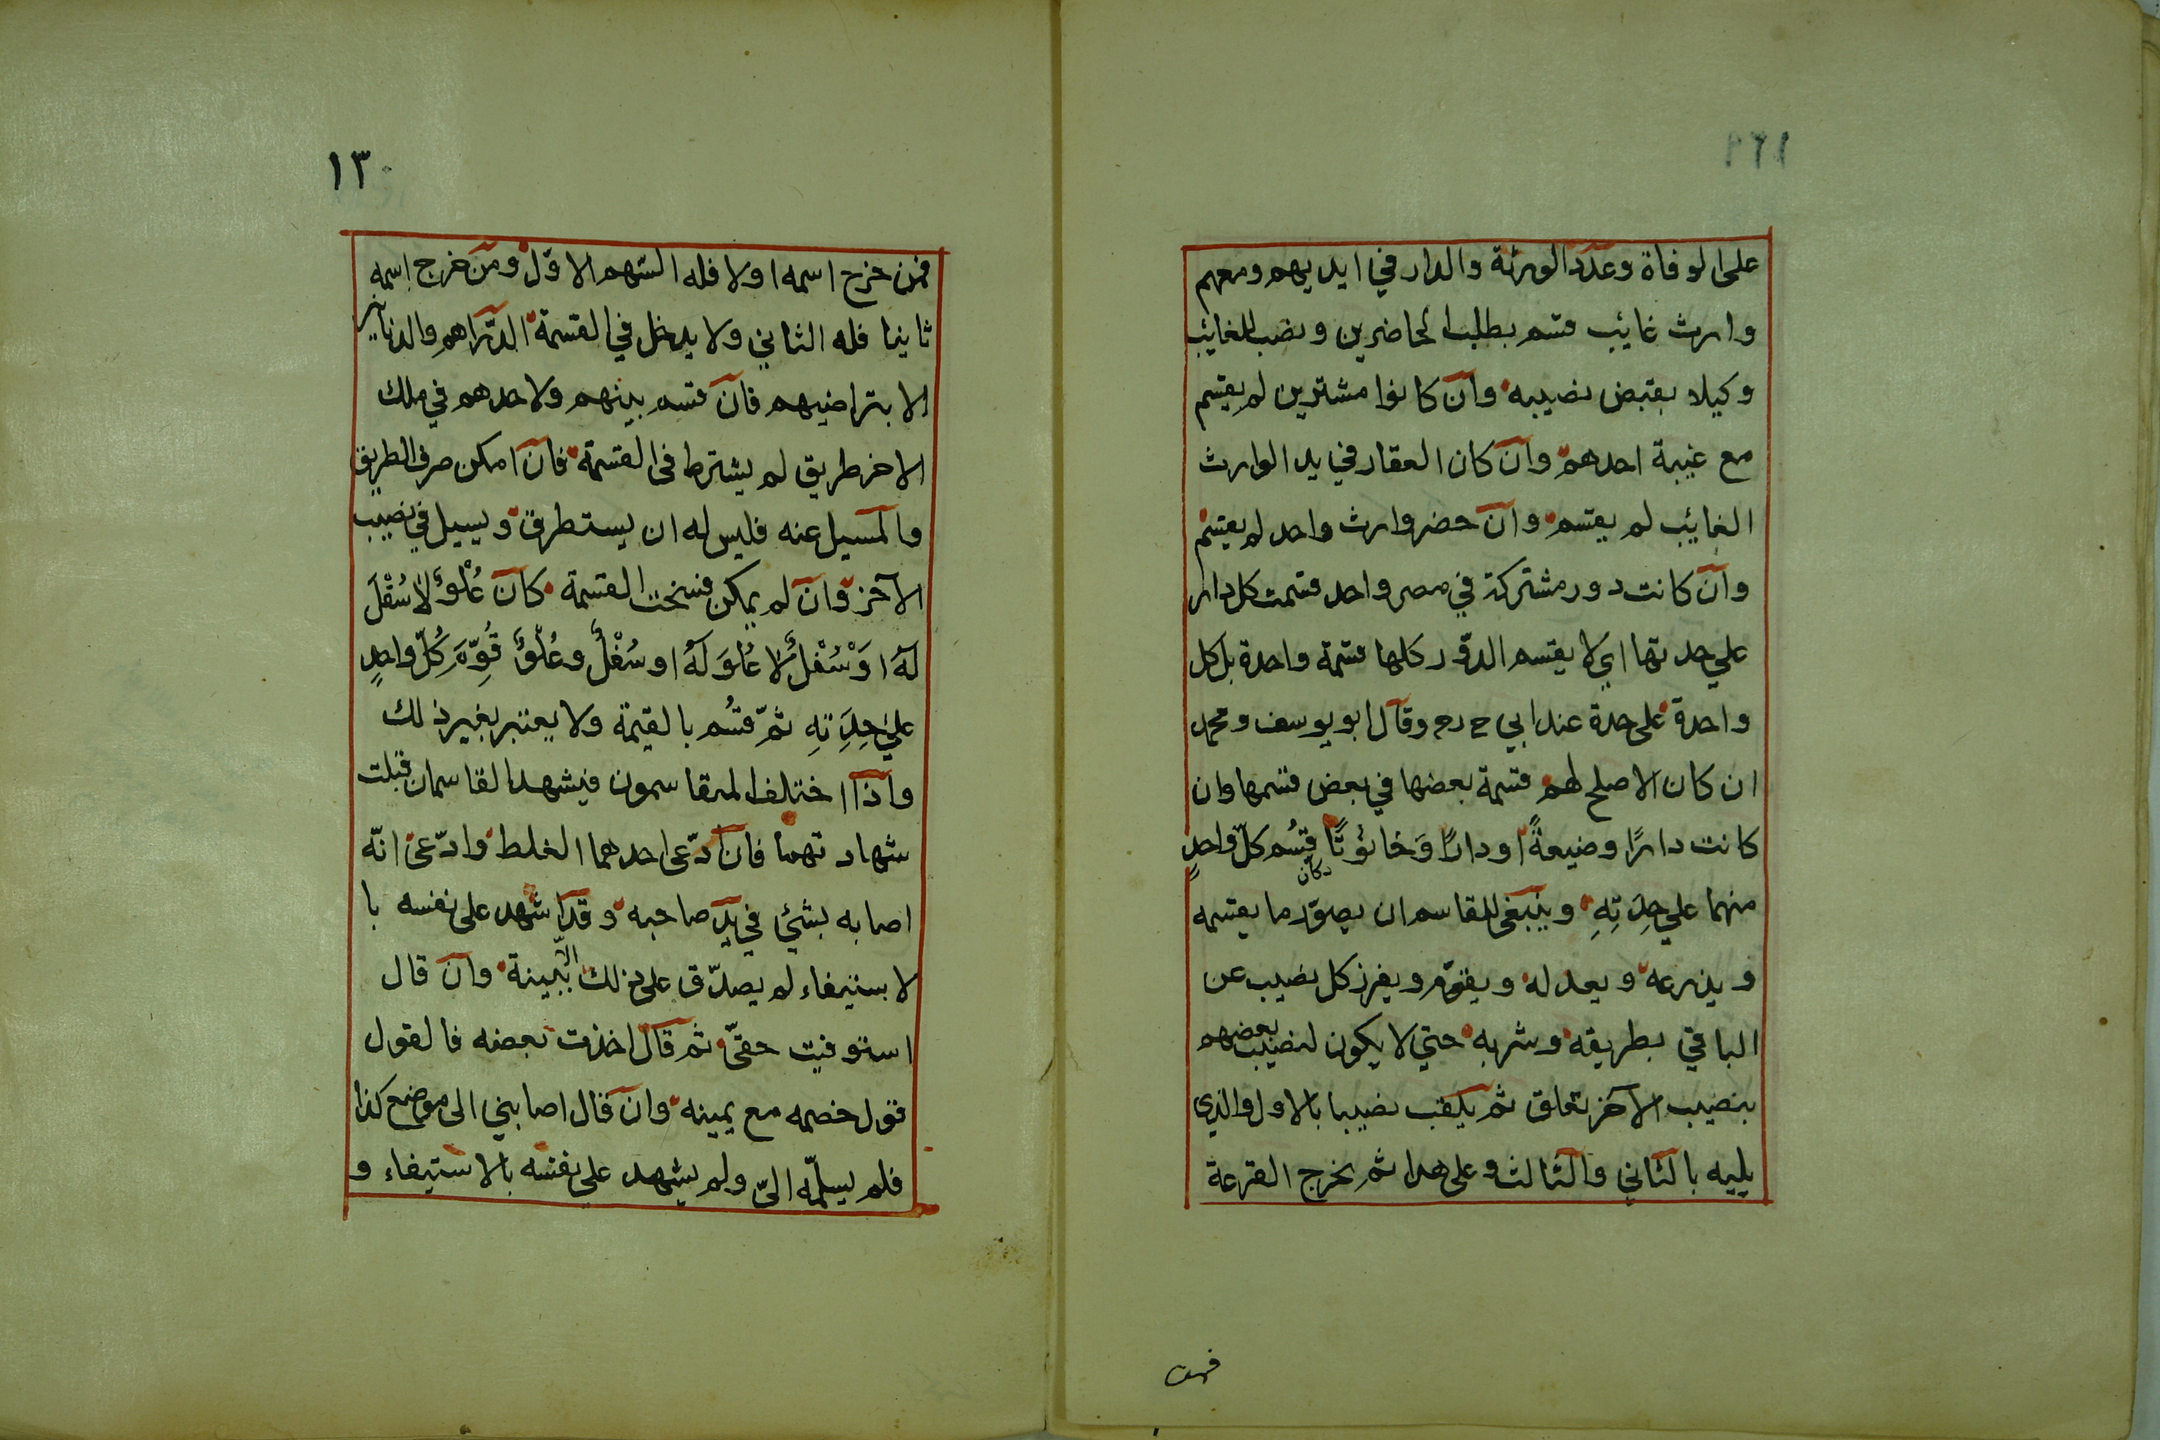 على الوفاة وعدد الورثة والدار في ايديهم ومعهم
وارث غائب قسم بطلب الحاضرين ونصب للغايب
وكيلا يقبض نصيبه وان كانوا مشترين لم يقسم
مع غيبة احدهم وان كان العقار في يد الوارث
الغائب لم يقسم وان حضر وارث واحد لم يقسم
وان كانت دور مشتركة في مصر واحد قسمت كل دار
علي حدتها اي لا يقسم الدور كلها قسمة واحدة بل كل
واحدة على حدة عند ابي ح رح وقال ابو يوسف ومحمد
ان كان الاصلح لهم قسمة بعضها في بعض قسمها وان
كانت دارًا وضيعةً او دارًا وَحَانُوتًا قُسِم كلّ واحدٍ
دكان
منهما علي حِدَتِهِ وينبغى للقاسم ان يصوّر ما يقسمه
و يذرعه و يعدله ويقوّم ويفرز كل نصيب عن
الباقي بطريقه وشربه حتي لا يكون لنصيب بعضهم
بنصيب الآخر تعلق ثم يكتب نصيبا بالاول والذي
يليه بالثاني والثالث وعلى هذا ثم يخرج القرعة
فمن
١٣٠
فمن خرج اسمه اولا فله السّهم الاوّل ومن خرج اسمه
ثانيا فله الثاني ولا يدخل في القسمة الدّراهم والدنانير
الا بتراضيهم فان قسم بينهم ولاحدهم في ملك
الاخر طريق لم يشترط فى القسمة فان امكن صرف الطريق
والمسيل عنه فليس له ان يستطرق ويسيل في نصيب
الآخر وان لم يمكن فسخت القسمة كان عُلْوٌ لا سُفْلَ
لَهُ اَوْ سُفْلٌ لا عُلوَ لَهُ او سُفْلٌ وعُلْوٌ قُوِّمَ كُلّ واحدٍ
عليٰ حِدَتِهِ ثمّ قسُم بالقيمة ولا يعتبر بغير ذلك
واذا اختلف المتقاسمون فيشهد القاسمان قبلت
شهادتهما فان ادّعى احدهما الغلط وادّعى انّه
اصابه بشئي في يد صاحبه وقد اشهد على نفسه با
لاستيفاء لم يصدّق على ذلك الّا ببّينة وان قال
استوفيت حقىّ ثم قال اخذت بعضه فالقول
قول خصمه مع يمينه وان قال اصابني الى موضع كذا
فلم يسلمّه الىّ ولم يشهد على نفسه بالاستيفاء و